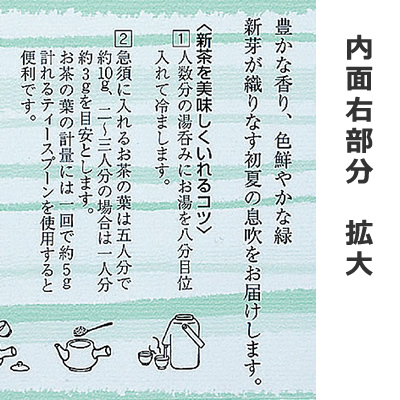 内面右部分　拡大
豊かな香り、色鮮やかな緑
新芽が織りなす初夏の息吹をお届けします。
〈新茶を美味しくいれるコツ〉
1 人数分の湯呑みにお湯を八分目位
入れて冷まします。
2 急須に入れるお茶の葉は五人分で
約10g、二〜三人分の場合は一人分
約3gを目安とします。
お茶の葉の計量には一回で約5g
計れるティースプーンを使用すると
便利です。